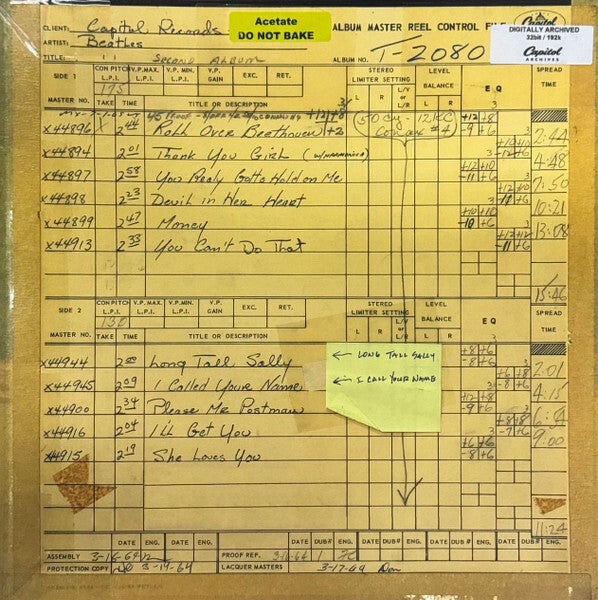 CLIENT: Capitol Records
Acetate
DO NOT BAKE
ALBUM MASTER REEL CONTROL FILE
Capitol
ARTIST: Beatles
DIGITALLY ARCHIVED
32bit / 192k
Capitol
ARCHIVES
TITLE: " Second Album
ALBUM NO. T-2080
SIDE 1 CON PITCH L.P.I. V.P. MAX. L.P.I. V.P. MIN. L.P.I. V.P. GAIN EXC. RET. STEREO LIMITER SETTING LEVEL BALANCE EQ SPREAD TIME
175
L R L/V or L/R/V L R
MASTER NO. TAKE TIME TITLE OR DESCRIPTION
+12 +8
(50 cy - 12KC
x44896 X 2 44 Roll Over Beethoven +2 +12 +8 -9 +6 2:44
x44894 2 01 Thank You Girl (w/harmonica) +10 +10 -12 +6 4:48
x44897 2 58 You Realy Gotta Hold on Me +12 +10 -11 +6 7:50
x44898 2 23 Devil in Her Heart +12 +10 -11 +6 10:21
x44899 2 47 Money +10 +10 -10 +6 13:08
x44913 2 33 You Can't Do That +12 +12 -11 +6
15:46
SIDE 2 CON PITCH L.P.I. V.P. MAX. L.P.I. V.P. MIN. L.P.I. V.P. GAIN EXC. RET. STEREO LIMITER SETTING LEVEL BALANCE EQ SPREAD TIME
130
MASTER NO. TAKE TIME TITLE OR DESCRIPTION
x44944 2 00 Long Tall Sally ← LONG TALL SALLY +8 +6 -8 +6 2:01
x44945 2 09 I Called Your Name ← I CALL YOUR NAME +6 +8 -8 +6 4:15
x44900 2 34 Please Mr Postman +12 +8 -9 +6
x44916 2 04 I'll Get You +8 +8 -7 +6 9:00
x44915 2 19 She Loves You +6 +6 -8 +6
11:24
DATE ENG. DATE ENG. DATE DUB# ENG. DATE DUB# ENG. DATE DUB# ENG.
ASSEMBLY 3-16-64 PROOF REP. 3-16-64 1
PROTECTION COPY 3-19-64 LACQUER MASTERS 3-17-64 Don